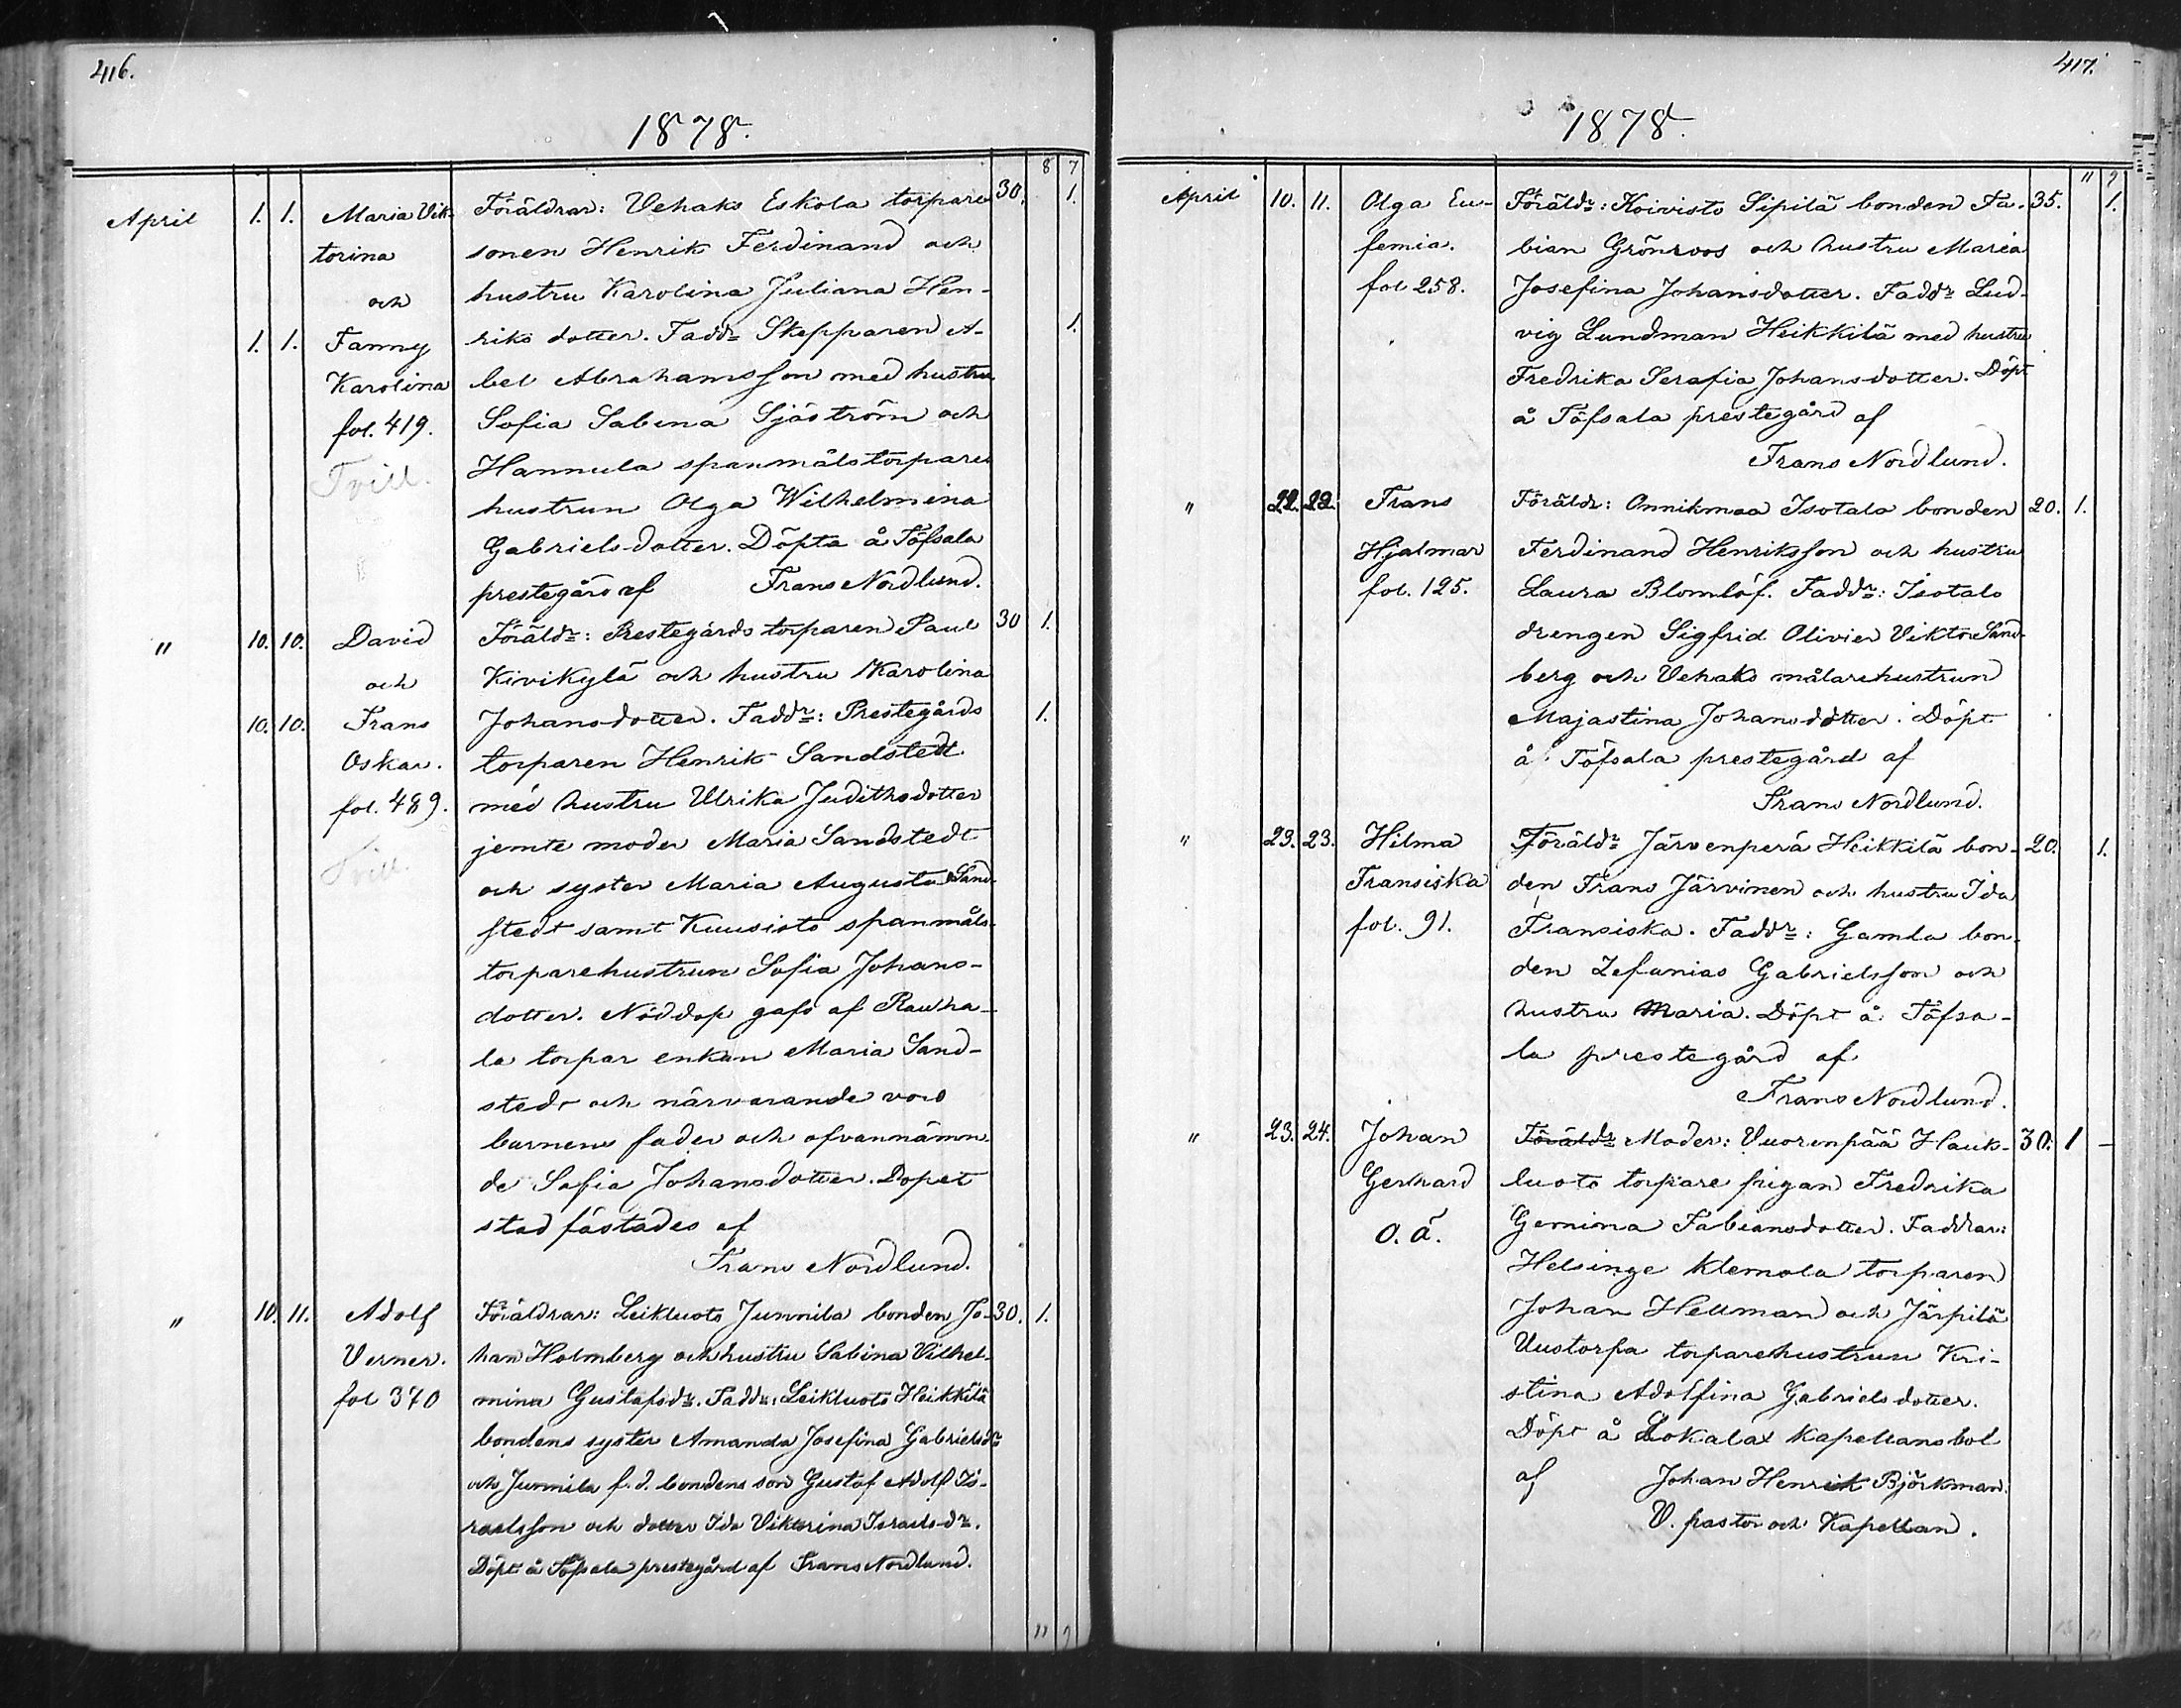 416.
1878.
8 7
April 1. 1. Maria Vik- Föräldrar: Vehaks Eskola torpare 30. 1.
torina sonen Henrik Ferdinand och
och hustru Karolina Juliana Hen-
1. 1. Fanny riks dotter. Fadd: Skepparen A- 1.
Karolina bel Abrahamsson med hustru
fol. 419. Sofia Sabina Sjöström och
Tvill. Hannula spanmåls torpare
hustrun Olga Wilhelmina
Gabrielsdotter. Döpta å Töfsala
prestegård af Frans Nordlund.
" 10. 10. David Föräldr: Prestegårds torparen Paul 30 1.
och Kivikylä och hustru Karolina
10. 10. Frans Johansdotter. Faddr: Prestegårds 1.
Oskar. torparen Henrik Sandstedt
fol. 489. med hustru Ulrika Judithsdotter
Tvill. jemte moder Maria Sandstedt
och syster Maria Augusta Sand-
stedt samt Kuusisto spanmåls-
torparehustrun Sofia Johans-
dotter. Nöddop gafs af Rauha-
la torpar enkan Maria Sand-
stedt och närvarande voro
barnens fader och ofvannämn-
de Sofia Johansdotter. Dopet
stadfästades af
Frans Nordlund.
" 10. 11. Adolf Föräldrar: Leikluoto Junnila bonden Jo- 30. 1.
Verner. han Holmberg och hustru Sabina Vilhel-
fol 370 mina Gustafsdr. Faddr: Leikluoto Heikkilä
bondens syster Amanda Josefina Gabrielsdr
och Junnila f.d. bondens son Gustaf Adolf Is-
raelsson och dotter Ida Viktorina Israelsdr.
Döpt å Töfsala prestegård af Frans Nordlund.
11 9
417.
1878.
11 9
April 10. 11. Olga Eu- Föräldr: Koivisto Sipilä bonden Fa- 35. 1.
femia. bian Grönroos och hustru Maria
fol 258. Josefina Johansdotter. Faddr Lud-
vig Lundman Heikkilä med hustru
Fredrika Serafia Johansdotter. Döpt
å Töfsala prestegård af
Frans Nordlund.
" 22. 22. Frans Föräldr: Onnikmaa Isotalo bonden 20. 1.
Hjalmar Ferdinand Henriksson och hustru
fol. 125. Laura Blomlöf. Faddr: Isotalo
drengen Sigfrid Olivier Viktor Sand-
berg och Vehaks målarehustrun
Majastina Johansdotter. Döpt
å Töfsala prestegård af
Frans Nordlund.
" 23. 23. Hilma Föräldr Järvenperä Heikkilä bon- 20. 1.
Fransiska den Frans Järvinen och hustru Ida
fol. 91. Fransiska. Faddr: Gamla bon-
den Zefanias Gabrielsson och
hustru Maria. Döpt å Töfsa-
la prestegård af
Frans Nordlund.
" 23. 24. Johan Föräldr Moder: Vuorenpää Hauk- 30. 1 –
Gerhard luoto torpare pigan Fredrika
o. ä. Gemina Fabiansdotter. Faddrar:
Helsinge Klemola torparen
Johan Hellman och Järpilä
Uustorpa torparehustrun Kri-
stina Adolfina Gabrielsdotter.
Döpt å Lokalax Kapellansbol
af Johan Henrik Björkman.
V. pastor och Kapellan.